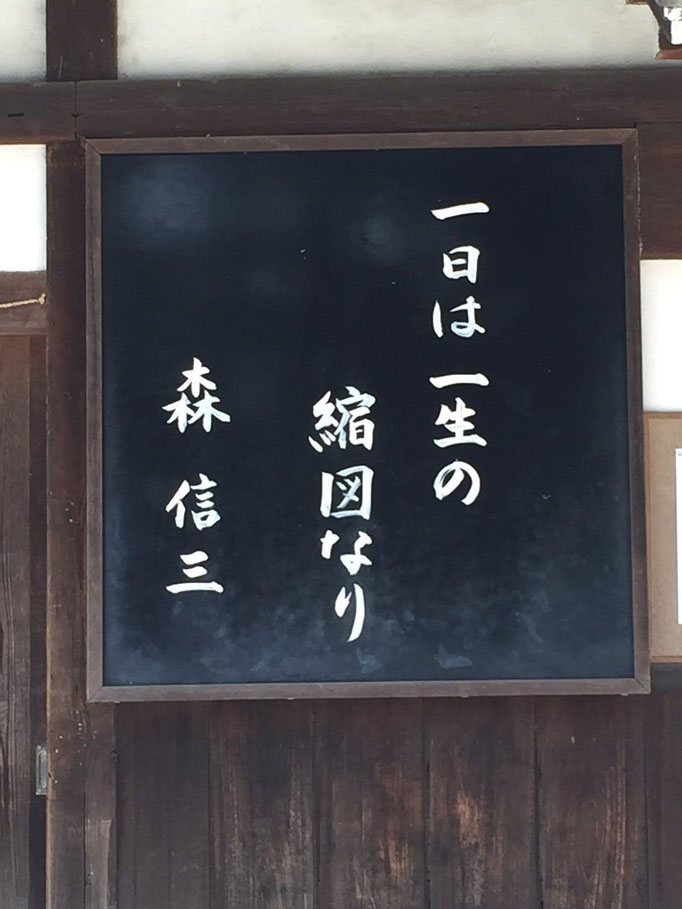 一日は一生の
縮図なり
森信三